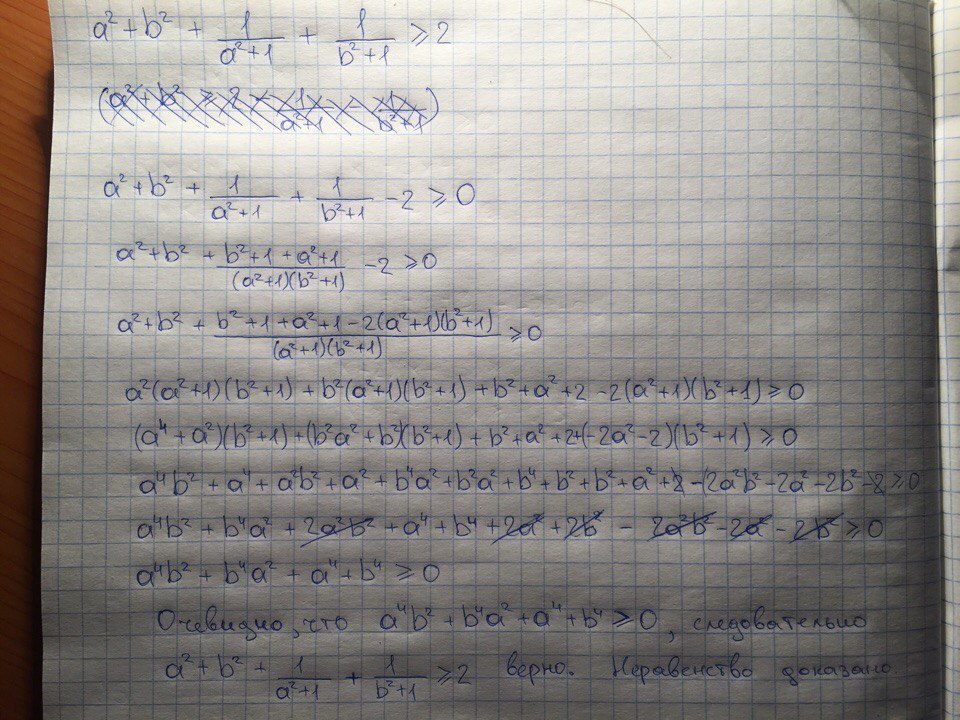 a² + b² + 1/(a²+1) + 1/(b²+1) ⩾ 2
a² + b² + 1/(a²+1) + 1/(b²+1) - 2 ⩾ 0
a² + b² + (b²+1+a²+1)/((a²+1)(b²+1)) - 2 ⩾ 0
a² + b² + (b²+1+a²+1-2(a²+1)(b²+1))/((a²+1)(b²+1)) ⩾ 0
a²(a²+1)(b²+1) + b²(a²+1)(b²+1) + b² + a² + 2 - 2(a²+1)(b²+1) ⩾ 0
(a⁴ + a²)(b²+1) + (b²a² + b²)(b²+1) + b² + a² + 2 + (-2a²-2)(b²+1) ⩾ 0
a⁴b² + a⁴ + a²b² + a² + b⁴a² + b²a² + b⁴ + b² + b² + a² + 2 - 2a²b² - 2a² - 2b² - 2 ⩾ 0
a⁴b² + b⁴a² + 2a²b² + a⁴ + b⁴ + 2a² + 2b² - 2a²b² - 2a² - 2b² ⩾ 0
a⁴b² + b⁴a² + a⁴ + b⁴ ⩾ 0
Очевидно, что a⁴b² + b⁴a² + a⁴ + b⁴ ⩾ 0, следовательно
a² + b² + 1/(a²+1) + 1/(b²+1) ⩾ 2 верно. Неравенство доказано